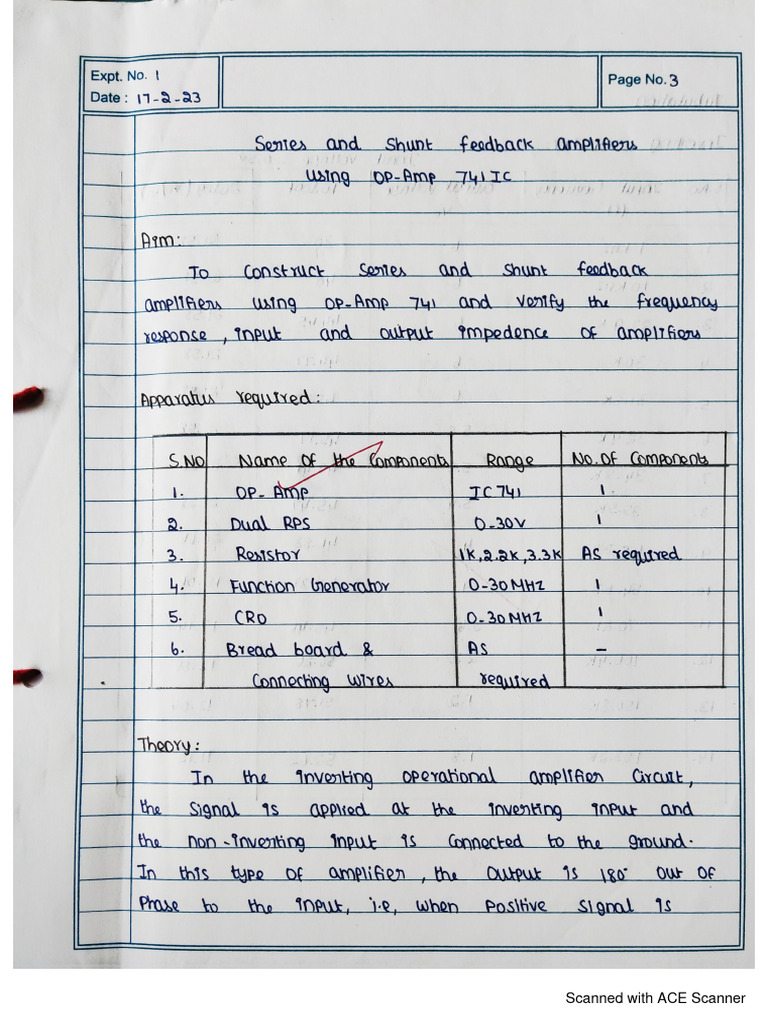 Expt. No. 1
Date : 17-2-23
Page No. 3
Series and Shunt feedback amplifiers
using OP-Amp 741 IC
Aim:
To Construct Series and Shunt feedback
amplifiers using OP-Amp 741 and verify the frequency
response, input and output impedence of amplifiers
Apparatus required:
S.NO Name Of the Components Range No. Of Components
1. OP-Amp IC 741 1
2. Dual RPS 0-30V 1
3. Resistor 1K, 2.2K, 3.3K AS required
4. Function Generator 0-30 MHZ 1
5. CRO 0-30 MHZ 1
6. Bread board & AS -
Connecting wires required
Theory:
In the inverting operational amplifier circuit,
the signal is applied at the inverting input and
the non-inverting input is connected to the ground.
In this type of amplifier, the output is 180° out of
Phase to the input, i.e, when positive signal is
Scanned with ACE Scanner